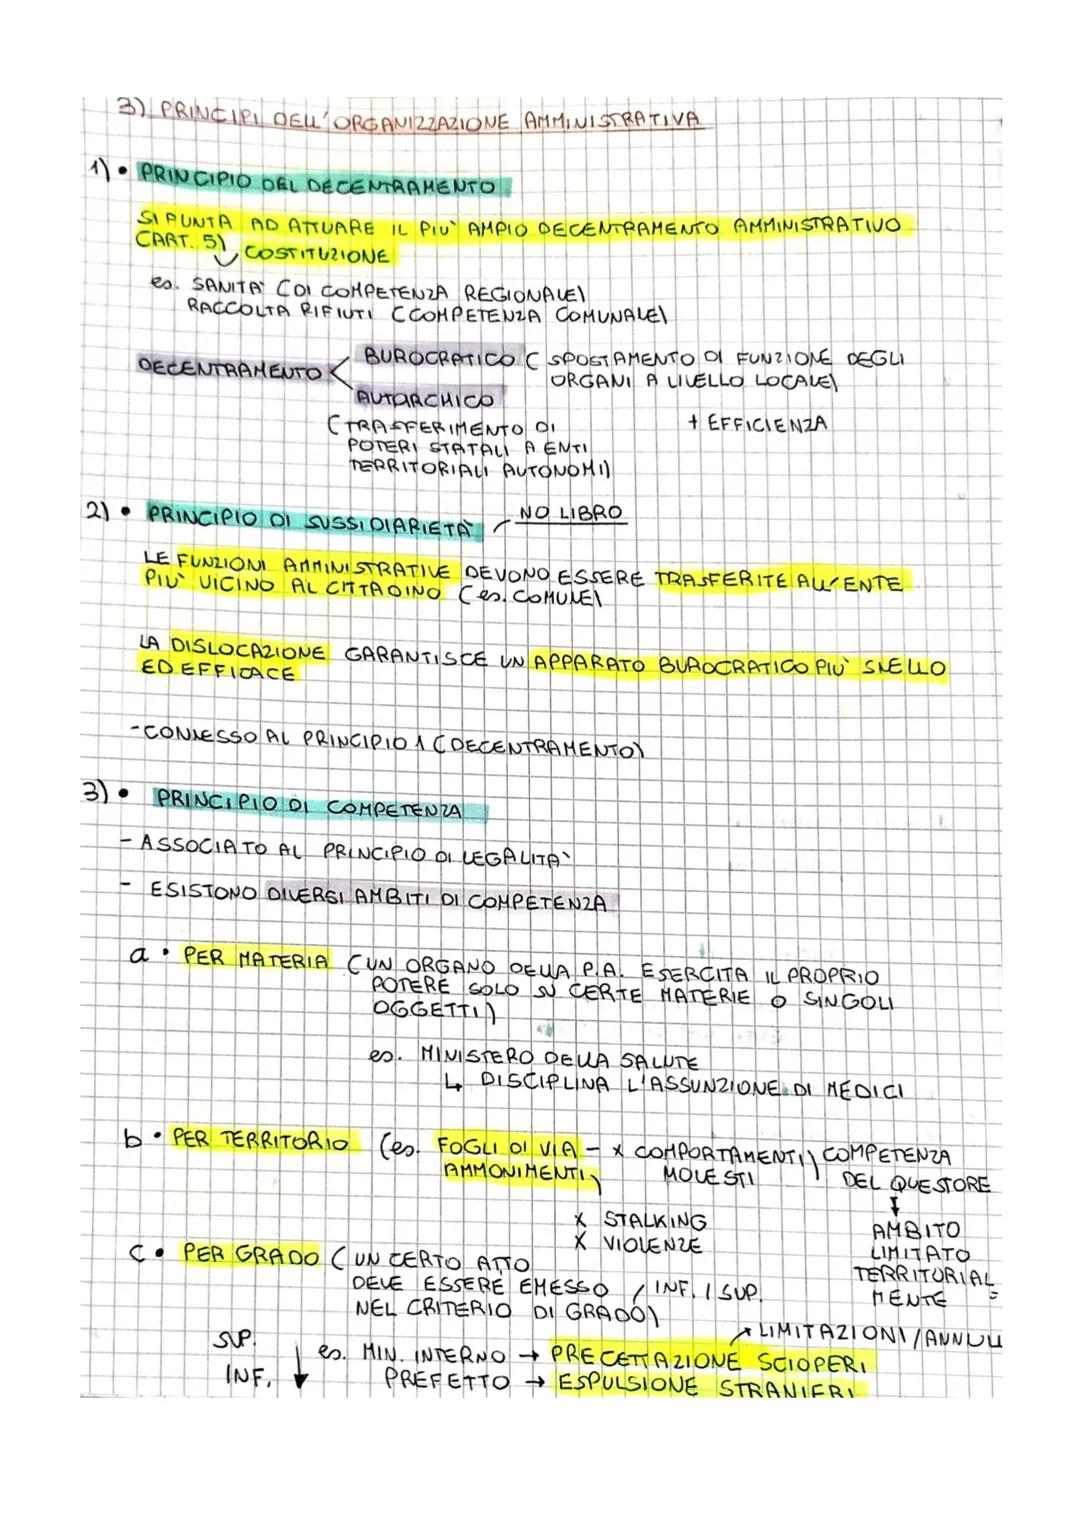 3) PRINCIPI DELL'ORGANIZZAZIONE AMMINISTRATIVA
1) • PRINCIPIO DEL DECENTRAMENTO
SI PUNTA AD ATTUARE IL PIU' AMPIO DECENTRAMENTO AMMINISTRATIVO
(ART. 5)
COSTITUZIONE
es. SANITA' (DI COMPETENZA REGIONALE)
RACCOLTA RIFIUTI (COMPETENZA COMUNALE)
DECENTRAMENTO < BUROCRATICO (SPOSTAMENTO DI FUNZIONE DEGLI
ORGANI A LIVELLO LOCALE)
AUTARCHICO
(TRASFERIMENTO DI + EFFICIENZA
POTERI STATALI A ENTI
TERRITORIALI AUTONOMI)
2) • PRINCIPIO DI SUSSIDIARIETA' NO LIBRO
LE FUNZIONI AMMINISTRATIVE DEVONO ESSERE TRASFERITE ALL'ENTE
PIU' VICINO AL CITTADINO (es. COMUNE)
LA DISLOCAZIONE GARANTISCE UN APPARATO BUROCRATICO PIU' SNELLO
ED EFFICACE
- CONNESSO AL PRINCIPIO 1 (DECENTRAMENTO)
3) • PRINCIPIO DI COMPETENZA
- ASSOCIATO AL PRINCIPIO DI LEGALITA'
- ESISTONO DIVERSI AMBITI DI COMPETENZA
a • PER MATERIA (UN ORGANO DELLA P.A. ESERCITA IL PROPRIO
POTERE SOLO SU CERTE MATERIE O SINGOLI
OGGETTI)
es. MINISTERO DELLA SALUTE
↳ DISCIPLINA L'ASSUNZIONE DI MEDICI
b • PER TERRITORIO (es. FOGLI DI VIA - x COMPORTAMENTI) COMPETENZA
AMMONIMENTI MOLESTI DEL QUESTORE
x STALKING AMBITO
x VIOLENZE LIMITATO
TERRITORIAL
MENTE =
c • PER GRADO (UN CERTO ATTO
DEVE ESSERE EMESSO / INF. / SUP.
NEL CRITERIO DI GRADO)
LIMITAZIONI/ANNULL
SUP. es. MIN. INTERNO → PRECETTAZIONE SCIOPERI
INF. ↓ PREFETTO → ESPULSIONE STRANIERI